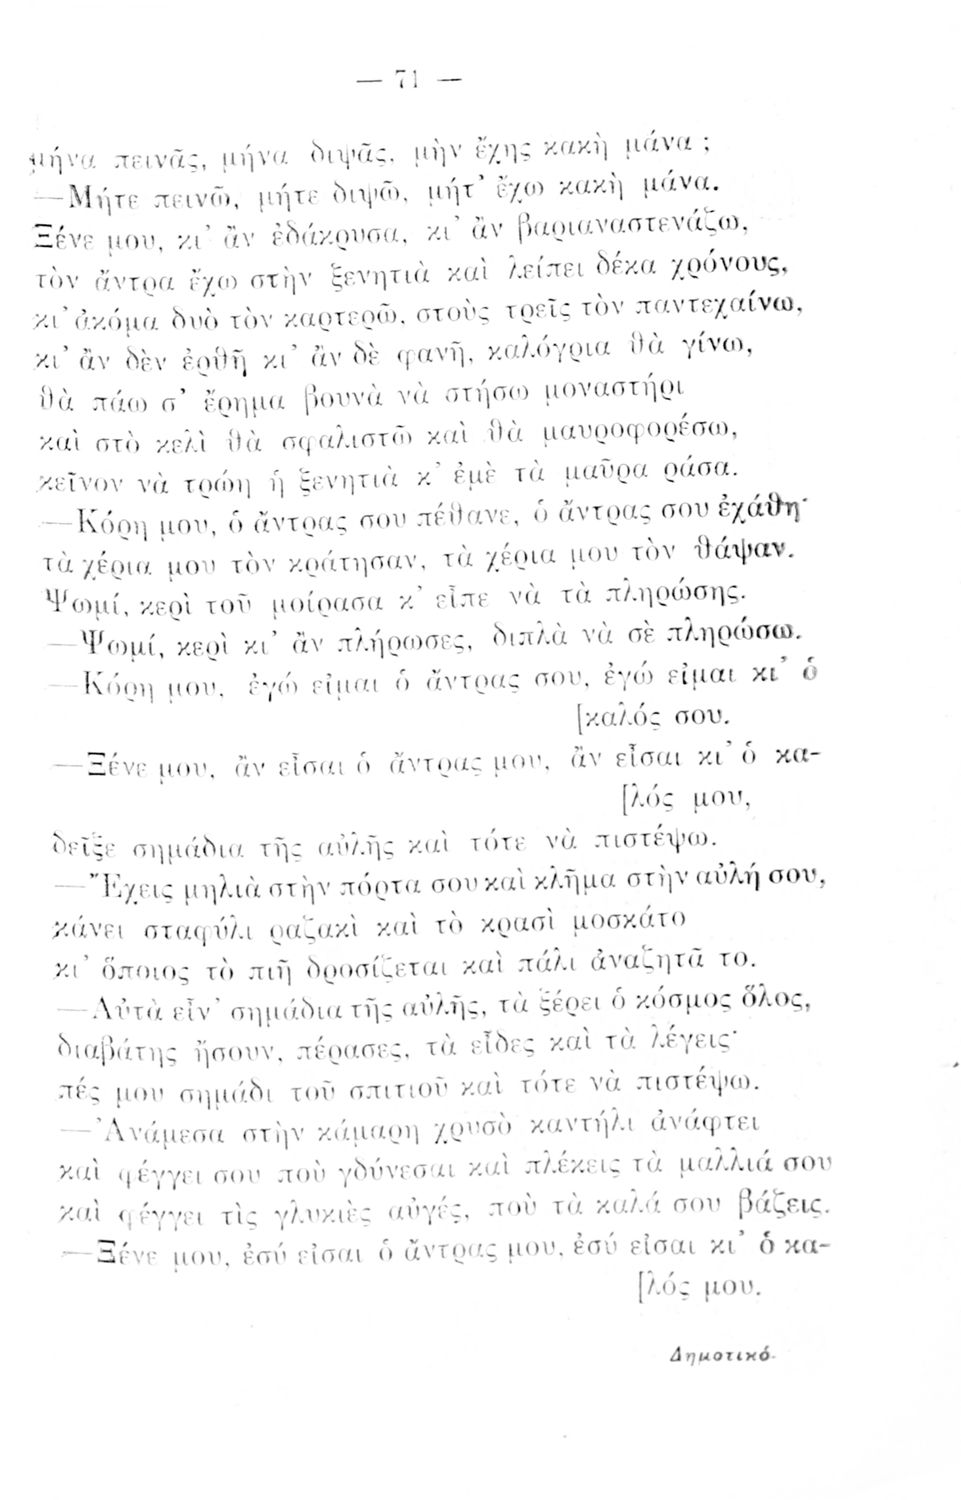 — 71 —
μήνα πεινᾷς, μήνα διψᾷς, μὴν ἔχῃς κακὴ μάνα ;
—Μήτε πεινῶ, μήτε διψῶ, μήτ’ ἔχω κακὴ μάνα.
Ξένε μου, κι’ ἂν ἐδάκρυσα, κι’ ἂν βαριαναστενάζω,
τὸν ἄντρα ἔχω στὴν ξενητιὰ καὶ λείπει δέκα χρόνους,
κι’ ἀκόμα δυὸ τὸν καρτερῶ, στοὺς τρεῖς τὸν παντεχαίνω,
κι’ ἂν δὲν ἐρθῇ κι’ ἂν δὲ φανῇ, καλόγρια θὰ γίνω,
θὰ πάω σ’ ἔρημα βουνὰ νὰ στήσω μοναστήρι
καὶ στὸ κελὶ θὰ σφαλιστῶ καὶ θὰ μαυροφορέσω,
κεῖνον νὰ τρώῃ ἡ ξενητιὰ κ’ ἐμὲ τὰ μαῦρα ράσα.
—Κόρη μου, ὁ ἄντρας σου πέθανε, ὁ ἄντρας σου ἐχάθη·
τὰ χέρια μου τὸν κράτησαν, τὰ χέρια μου τὸν θάψαν.
Ψωμί, κερὶ τοῦ μοίρασα κ’ εἶπε νὰ τὰ πληρώσῃς.
—Ψωμί, κερὶ κι’ ἂν πλήρωσες, διπλὰ νὰ σὲ πληρώσω.
—Κόρη μου, ἐγώ εἶμαι ὁ ἄντρας σου, ἐγώ εἶμαι κι’ ὁ
[καλός σου.
—Ξένε μου, ἂν εἶσαι ὁ ἄντρας μου, ἂν εἶσαι κι’ ὁ κα-
[λός μου,
δεῖξε σημάδια τῆς αὐλῆς καὶ τότε νὰ πιστέψω.
—Ἔχεις μηλιὰ στὴν πόρτα σου καὶ κλῆμα στὴν αὐλή σου,
κάνει σταφύλι ραζακὶ καὶ τὸ κρασὶ μοσκάτο
κι’ ὅποιος τὸ πιῇ δροσίζεται καὶ πάλι ἀναζητᾷ το.
—Αὐτὰ εἶν’ σημάδια τῆς αὐλῆς, τὰ ξέρει ὁ κόσμος ὅλος,
διαβάτης ἤσουν, πέρασες, τὰ εἶδες καὶ τὰ λέγεις·
πές μου σημάδι τοῦ σπιτιοῦ καὶ τότε νὰ πιστέψω.
—Ἀνάμεσα στὴν κάμαρη χρυσὸ καντήλι ἀνάφτει
καὶ φέγγει σου ποὺ γδύνεσαι καὶ πλέκεις τὰ μαλλιά σου
καὶ φέγγει τὶς γλυκιὲς αὐγές, ποὺ τὰ καλά σου βάζεις.
—Ξένε μου, ἐσύ εἶσαι ὁ ἄντρας μου, ἐσύ εἶσαι κι’ ὁ κα-
[λός μου.
Δημοτικό.